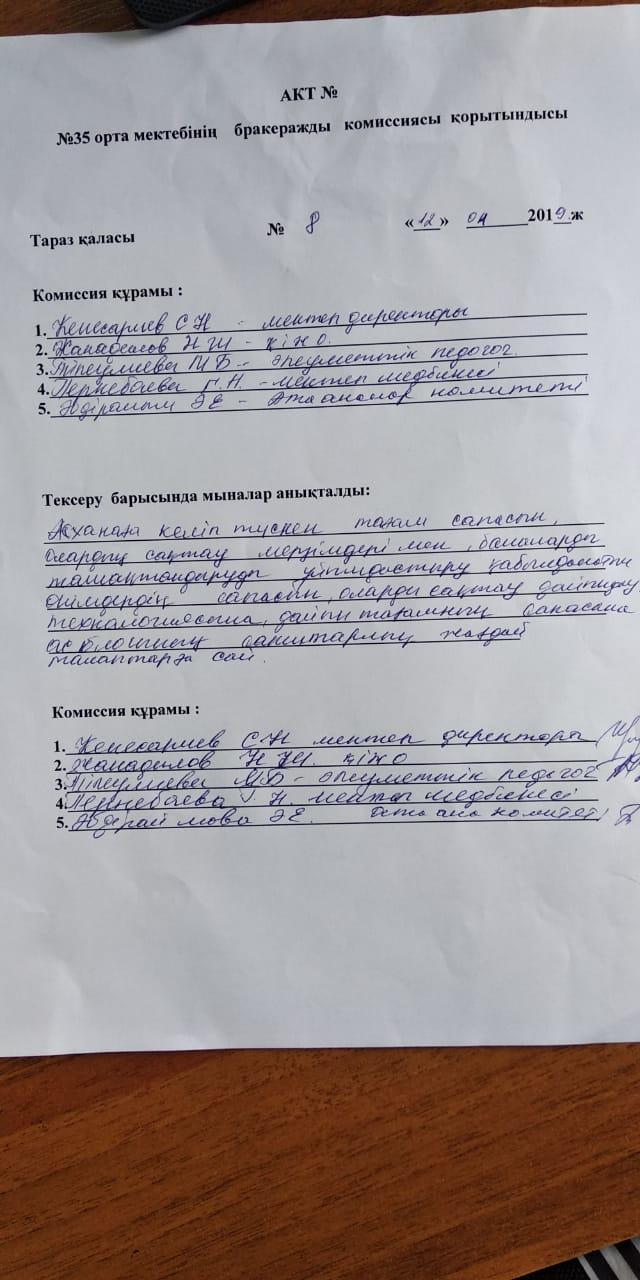 АКТ №
№35 орта мектебінің бракеражды комиссиясы қорытындысы
Тараз қаласы № 8 «12» 04 2019 ж
Комиссия құрамы :
1. Кенесариев С Н - мектеп директоры
2. Жанадилов Н Ш - ДІЖО.
3. Тілеулиева М Б - Әлеуметтік педогог.
4. Пернебаева Г. Н. - мектеп медбикесі
5. Әбдірайым Ә Е - Ата аналар комитеті
Тексеру барысында мыналар анықталды:
Асханаға келіп түскен тағам сапасын,
олардың сақтау мерзімдері мен, балаларды
тамақтандыруды ұйымдастыру қабылданатын
өнімдердің сапасын, оларды сақтау дайындау
технологиясына, дайын тағамның сапасына
ас блогының санитарлық жағдай
талаптарға сай.
Комиссия құрамы :
1. Кенесариев С Н мектеп директоры
2. Жанадилов Н Ш
3. Тілеулиева М Б - Әлеуметтік педогог
4. Пернебаева Г. Н. мектеп медбикесі
5. Әбдірайымова Ә Е. Ата ана комитеті